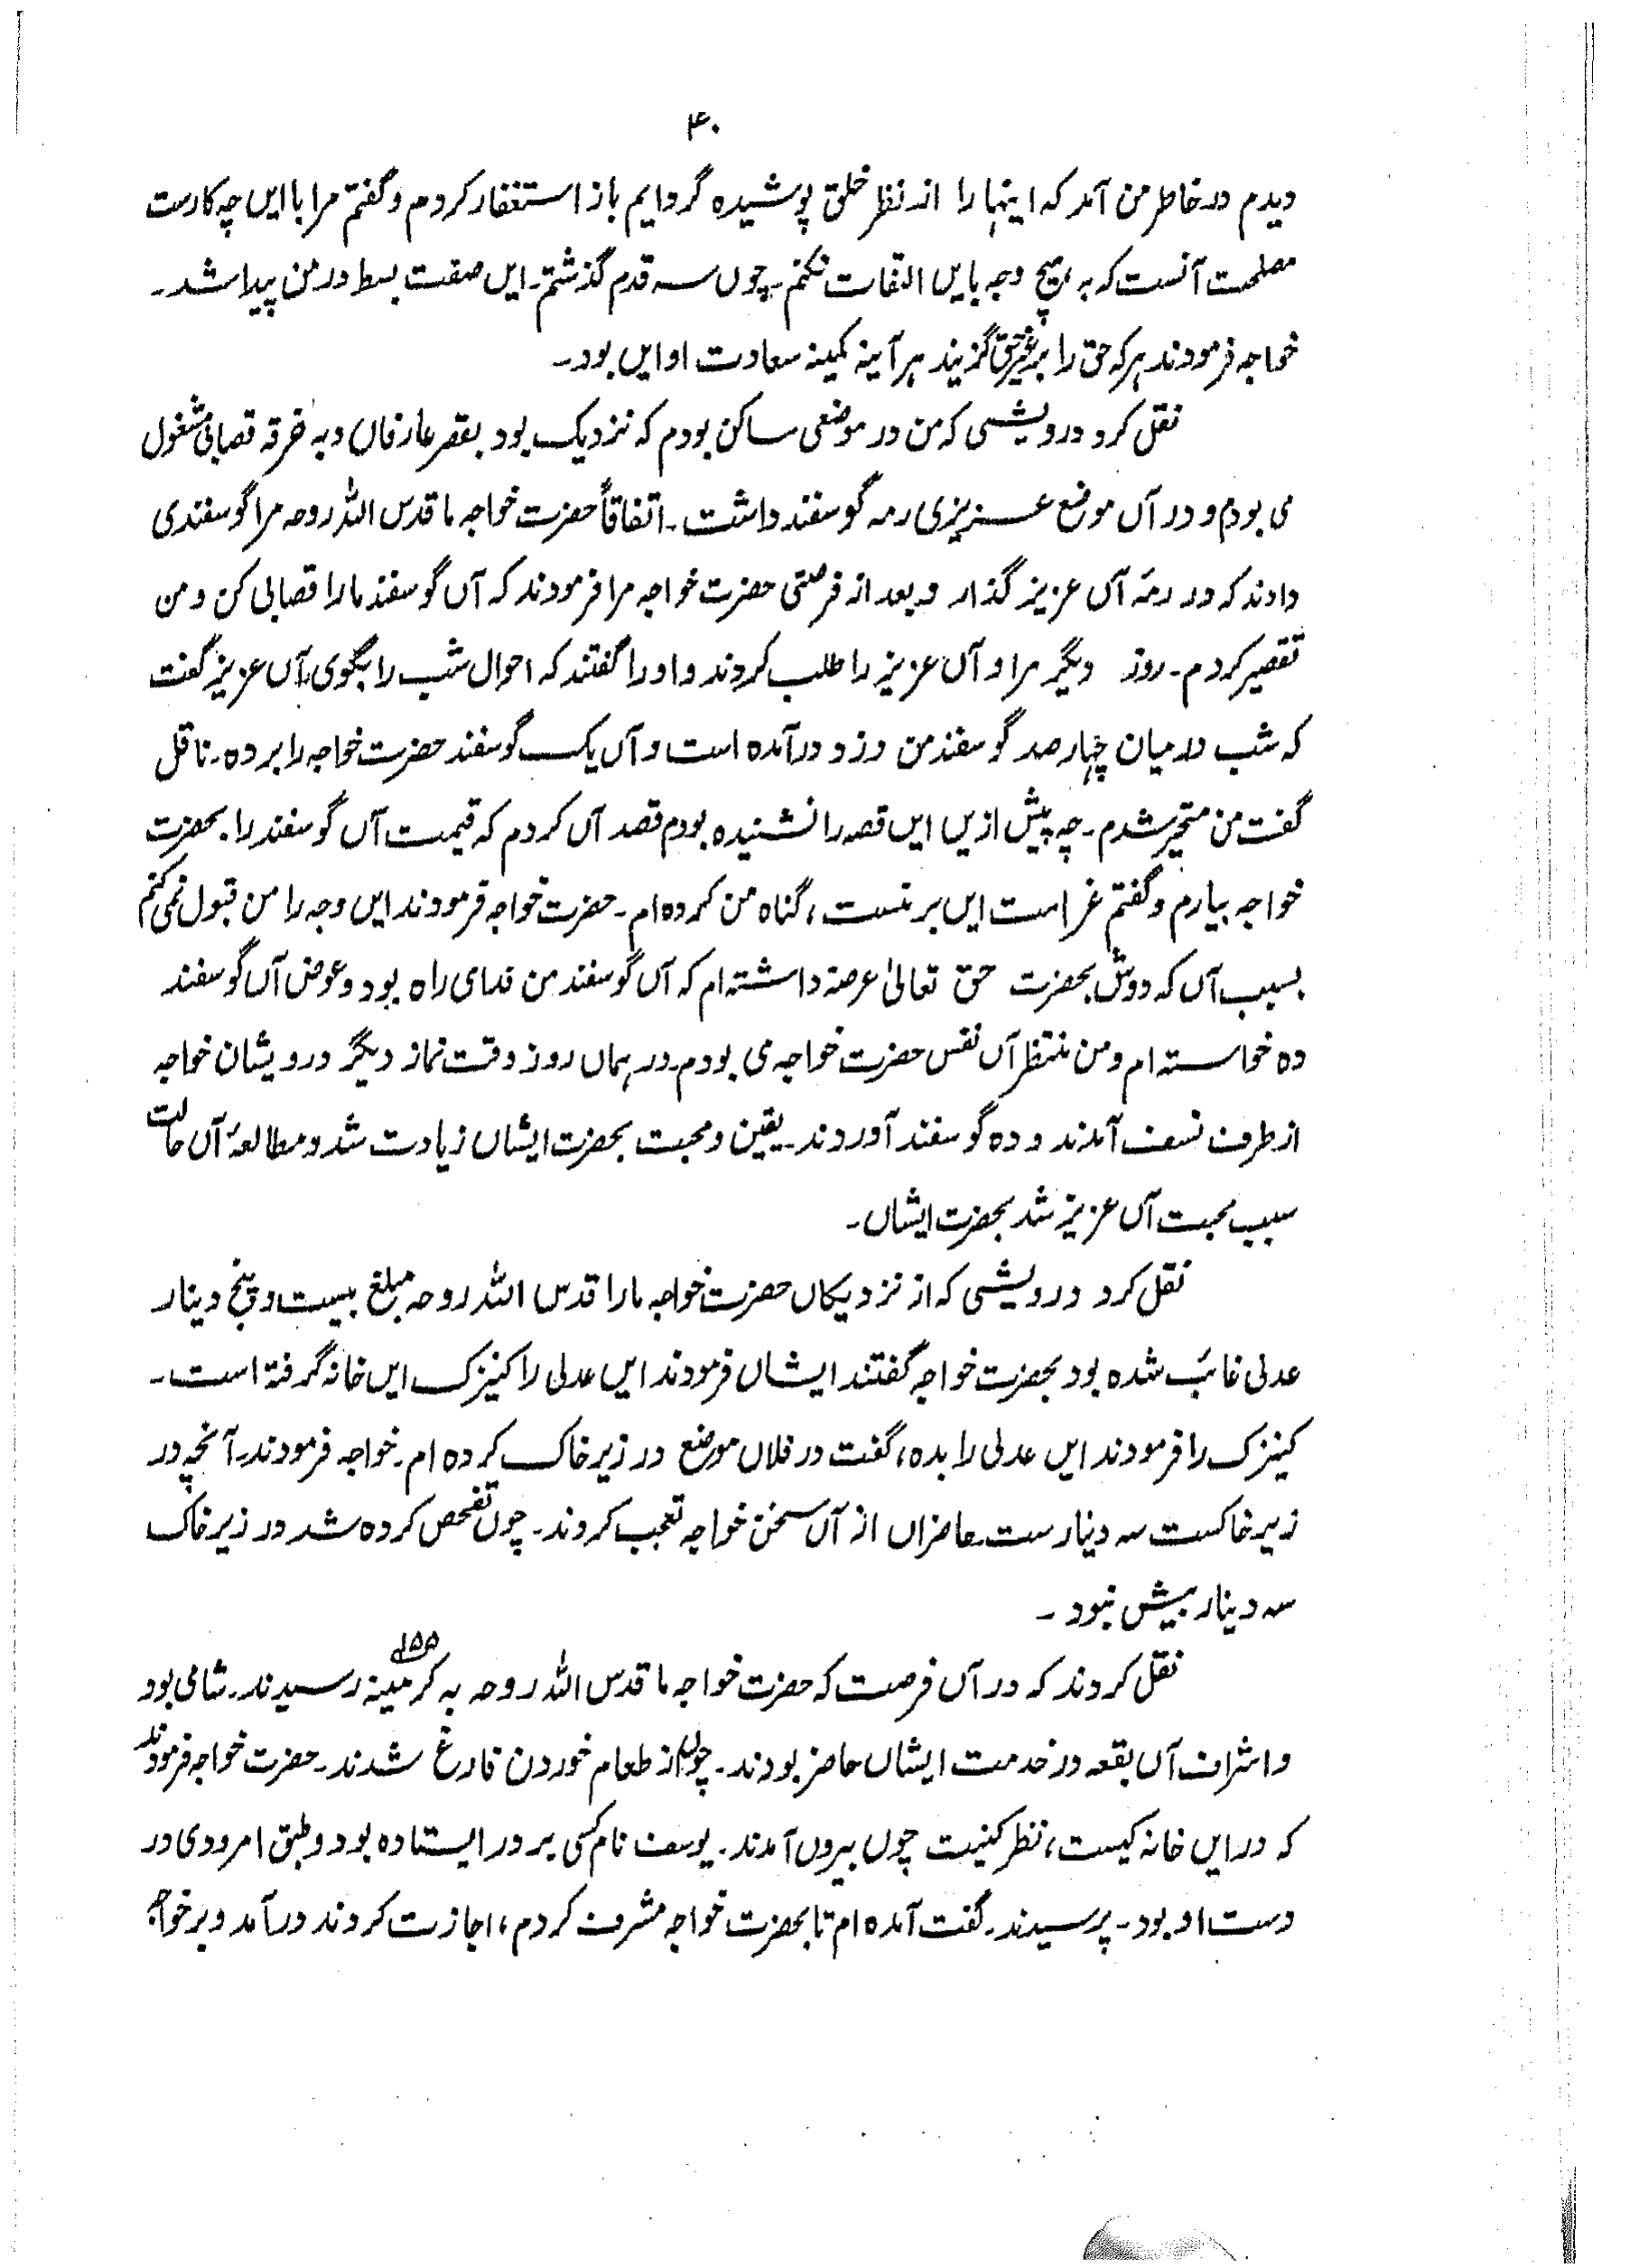 ۴۰
دیدم در خاطر من آمد که اینها را از نظر خلق پوشیده گردانیم باز استغفار کردم و گفتم مرا با ایں چه کارست
مصلحت آنست که به هیچ وجه بایں التفات نکنم۔ چوں سه قدم گذشتم۔ ایں صفت بسط در من پیدا شد۔
خواجه فرمودند هرکه حق را بر غیر حق گزیند هر آینه کمینه سعادت او ایں بود۔
نقل کرد درویشی که من در موضعی ساکن بودم که نزدیک بود بقصر عارفاں و به خرقه قصابی مشغول
می بودم و در آں موضع عزیزی رمه گوسفند داشت۔ اتفاقاً حضرت خواجه ما قدس اللہ روحه مرا گوسفندی
دادند که در رمهٔ آں عزیز گذار و بعد از فرصتی حضرت خواجه مرا فرمودند که آں گوسفند ما را قصابی کن و من
تقصیر کردم۔ روز دیگر مرا و آں عزیز را طلب کردند و او را گفتند که احوال شب را بگوی، آں عزیز گفت
که شب درمیان چهار صد گوسفند من دزد درآمده است و آں یک گوسفند حضرت خواجه را برده۔ ناقل
گفت من متحیر شدم۔ چه پیش ازیں ایں قصه را نشنیده بودم قصد آں کردم که قیمت آں گوسفند را بحضرت
خواجه بیارم و گفتم غرامت ایں بر منست، گناه من کرده ام۔ حضرت خواجه فرمودند ایں وجه را من قبول نمی کنم
بسبب آں که دوش بحضرت حق تعالیٰ عرضه داشته ام که آں گوسفند من فدای راه بود و عوض آں گوسفند
ده خواسته ام و من منتظر آں نفس حضرت خواجه می بودم۔ در ہماں روز وقت نماز دیگر درویشان خواجه
از طرف نسف آمدند و ده گوسفند آوردند۔ یقین و محبت بحضرت ایشاں زیادت شد و مطالعۂ آں حالت
سبب محبت آں عزیز شد بحضرت ایشاں۔
نقل کرد درویشی که از نزدیکاں حضرت خواجه ما را قدس اللہ روحه مبلغ بیست و پنج دینار
عدلی غائب شده بود بحضرت خواجه گفتند ایشاں فرمودند ایں عدلی را کنیزک ایں خانه گرفته است۔
کنیزک را فرمودند ایں عدلی را بده، گفت در فلاں موضع در زیر خاک کرده ام۔ خواجه فرمودند۔ آنچه در
زیر خاکست سه دینارست۔ حاضراں از آں سخن خواجه تعجب کردند۔ چوں تفحص کرده شد در زیر خاک
سه دینار بیش نبود۔
نقل کردند که در آں فرصت که حضرت خواجه ما قدس اللہ روحه به کرمینه رسیدند۔ شامی بود
و اشراف آں بقعه در خدمت ایشاں حاضر بودند۔ چوں از طعام خوردن فارغ شدند۔ حضرت خواجه فرمودند
که در ایں خانه کیست، نظر کنیت چوں بیروں آمدند۔ یوسف نام کسی بر در ایستاده بود و طبق امرودی در
دست او بود۔ پرسیدند۔ گفت آمده ام تا بحضرت خواجه مشرف کردم، اجازت کردند درآمد و بر خواجه